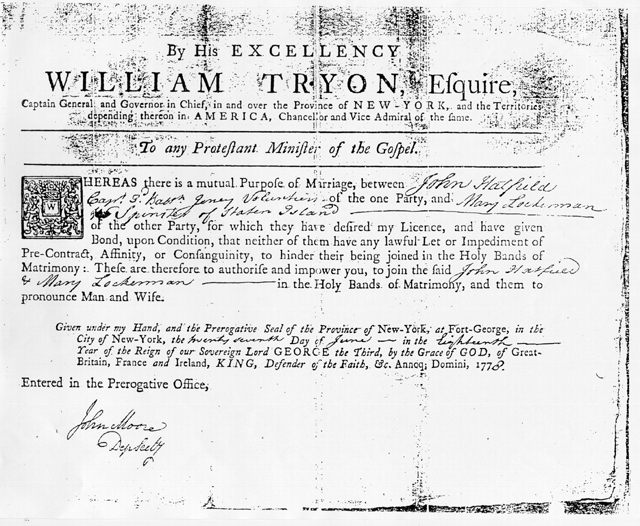 By His EXCELLENCY
WILLIAM TRYON, Esquire,
Captain General and Governor in Chief, in and over the Province of NEW-YORK, and the Territories
depending thereon in AMERICA, Chancellor and Vice Admiral of the same.
To any Protestant Minister of the Gospel.
WHEREAS there is a mutual Purpose of Marriage, between John Hatfield
Capt. 3d. Batt. Jersey Volunteers of the one Party, and Mary Lockerman
Spinster of Staten Island
of the other Party, for which they have desired my Licence, and have given
Bond, upon Condition, that neither of them have any lawful Let or Impediment of
Pre-Contract, Affinity, or Consanguinity, to hinder their being joined in the Holy Bands of
Matrimony: These are therefore to authorise and impower you, to join the said John Hatfield
& Mary Lockerman in the Holy Bands of Matrimony, and them to
pronounce Man and Wife.
Given under my Hand, and the Prerogative Seal of the Province of New-York, at Fort-George, in the
City of New-York, the twenty seventh Day of June in the Eighteenth
Year of the Reign of our Sovereign Lord GEORGE the Third, by the Grace of GOD, of Great-
Britain, France and Ireland, KING, Defender of the Faith, &c. Annoq; Domini, 1778.
Entered in the Prerogative Office,
John Moore
Dep Secty